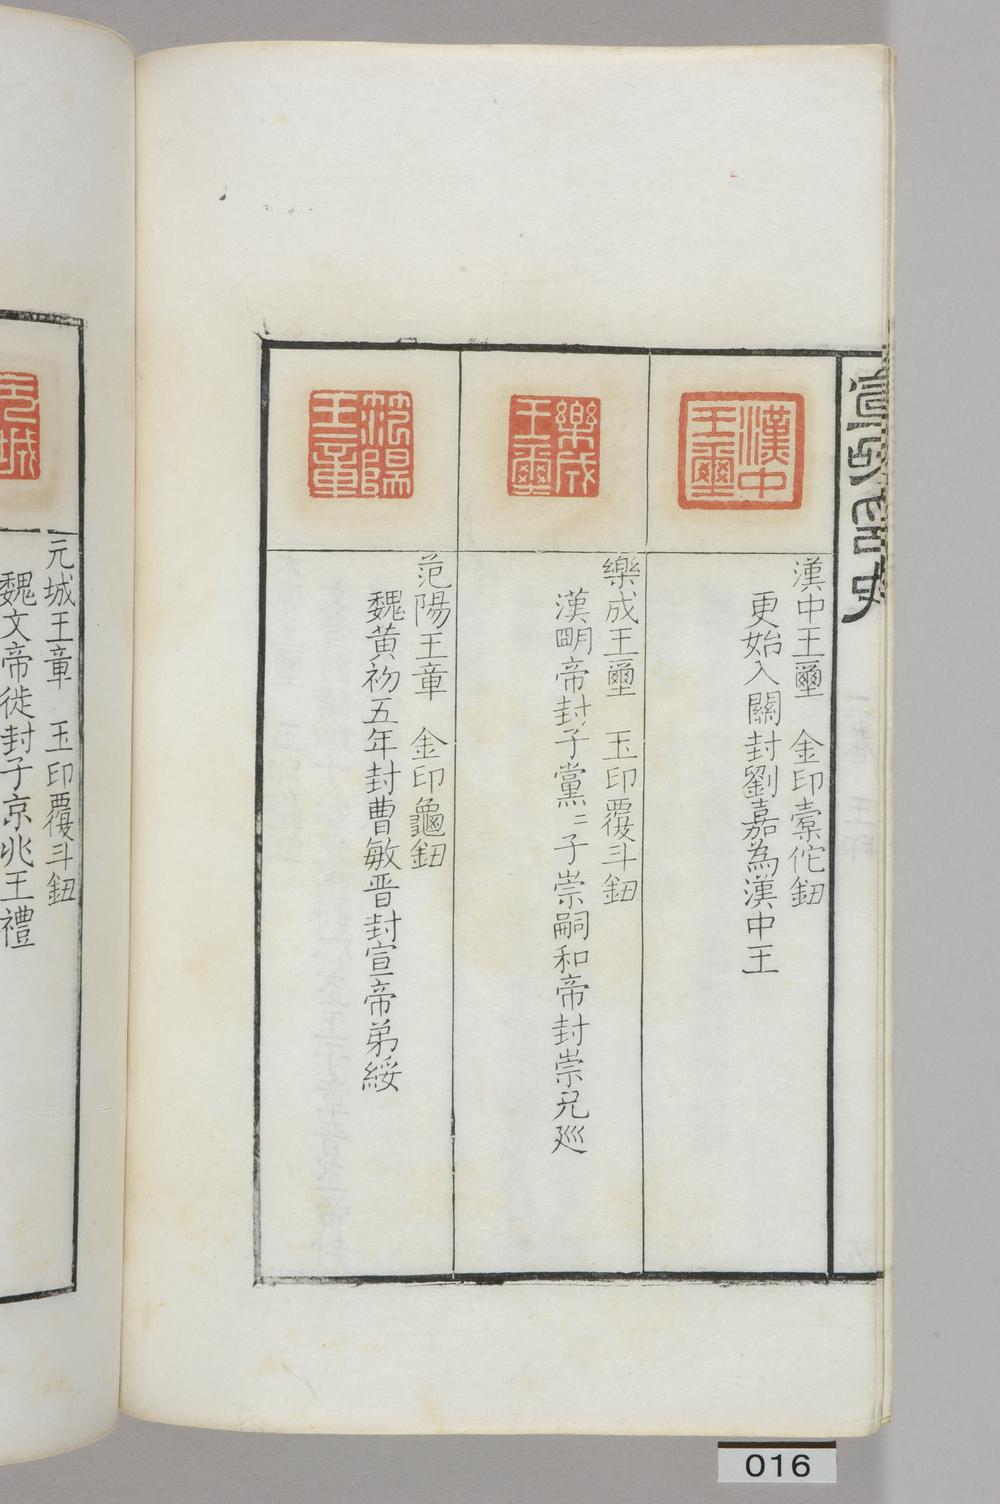 漢中王璽
漢中王壐　金印橐佗鈕
更始入關封劉嘉為漢中王
樂成王璽
樂成王壐　玉印覆斗鈕
漢明帝封子黨〻子崇嗣和帝封崇兄巡
范陽王章
范陽王章　金印龜鈕
魏黃初五年封曹敏晋封宣帝弟綏
元城
元城王章　玉印覆斗鈕
魏文帝徙封子京兆王禮
016